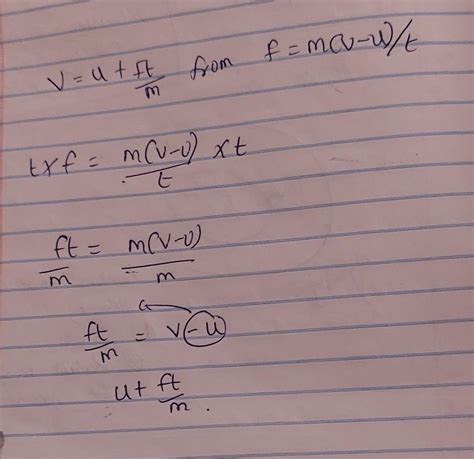 V = u + ft/m from f = m(v-u)/t
t x f = m(v-u)/t x t
ft/m = m(v-u)/m
ft/m = v - u
u + ft/m.